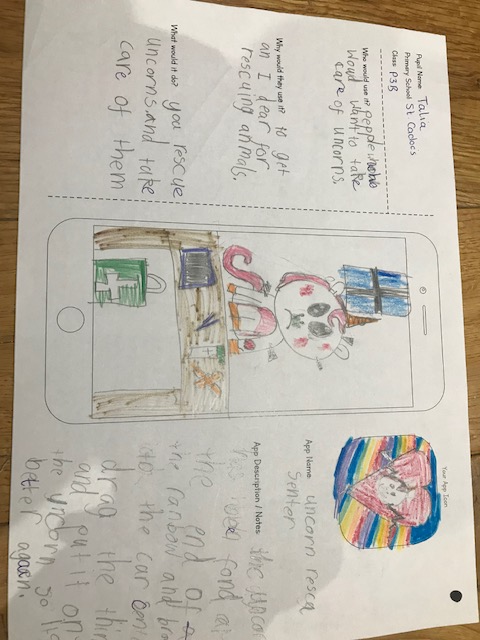 Pupil Name Talia
Primary School St Cadocs
Class P3B
Who would use it? people
Woud want to take
care of unicorns.
Why would they use it? to get
an I dear for
rescuing animals.
What would it do? you rescue
Unicorns and take
care of them
Your App Icon
App Name unicorn resca
Senter
App Description / Notes the
fond at
the end of
the rainbow and
into the car
drag the thin
and put it on
the unicorn go
better again.